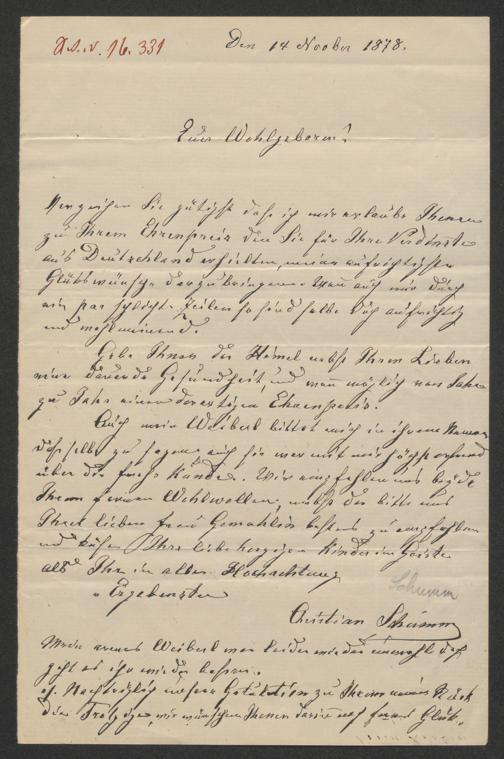 A.d.V. 16.331
Den 14 November 1878.
Euer Wohlgeboren!
Verzeihen Sie gütigst daß ich mir erlaube Ihnen
zu Ihrem Ehrenpreis den Sie für Ihre Verdienste
aus Deutschland erhielten, meine aufrichtigsten
Glückwünsche darzubringen. Wenn auch nur durch
ein par schlichte Zeilen so sind selbe doch aufrichtig
und wohlmeinend.
Gebe Ihnen der Himel nebst Ihren Lieben
eine dauernde Gesundheit, und wenn möglich von Jahr
zu Jahr einen derartigen Ehrenpreis.
Auch mein Weiberl bittet mich in ihrem Namen
daßselbe zu sagen, auch sie war mit mir höchst erfreut
über die frohe Kunde. Wir empfehlen uns beide
Ihrem fernern Wohlwollen, nebst der bitte uns
Ihrer lieben Frau Gemahlin bestens zu empfehlen
und küßen Ihre liebherzigen Kinder im Geiste
als Ihr in aller Hochachtung
Ergebenster
Schumm
Christian Schumm
Mein armes Weiberl war leider wieder unwohl doch
geht es ihr wieder besser.
Nachträglich unsere Gratulation zu Ihrem neuen Stück
die Trutzige, wir wünschen Ihnen dazu noch ferner Glück.